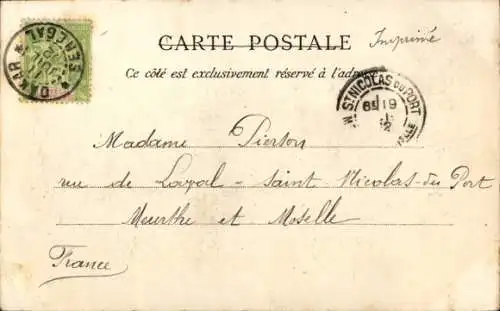 CARTE POSTALE
Imprimé
Ce côté est exclusivement réservé à l'adresse
DAKAR * SENEGAL
ST NICOLAS DU PORT
19
Madame Pierson
rue de Laval - Saint Nicolas-du Port
Meurthe et Moselle
France